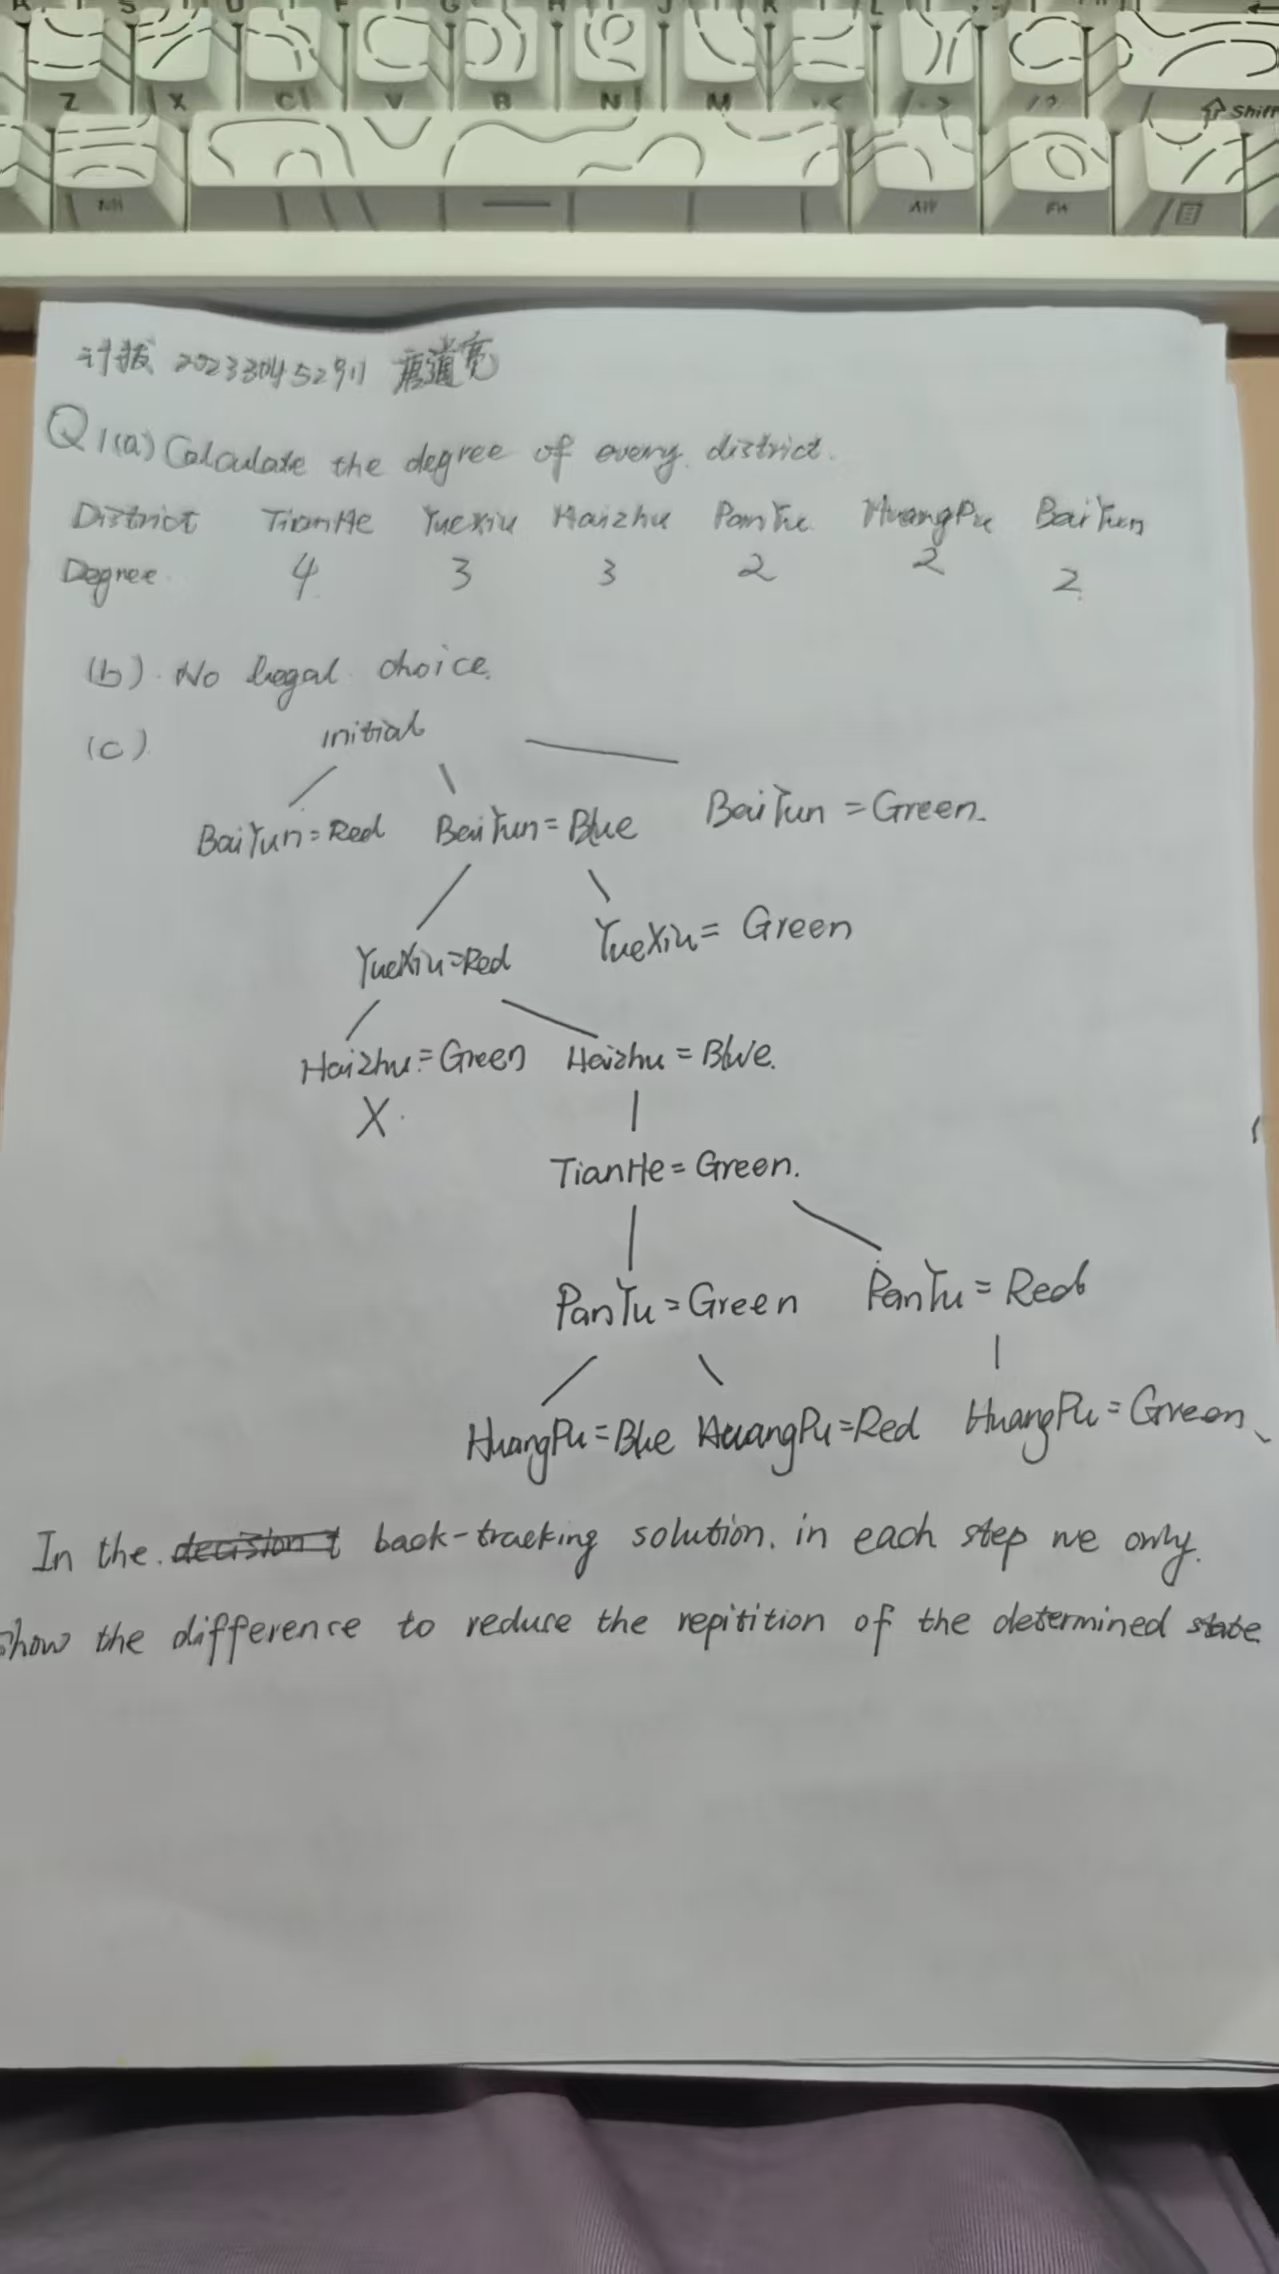 Z X C V B N M < > / ? Shift
Alt Fn
计拔 202330452911 唐道亮
Q1(a) Calculate the degree of every district.
District TianHe YueXiu Haizhu PanYu HuangPu BaiYun
Degree 4 3 3 2 2 2
(b). No legal choice.
(c). initial
BaiYun=Red BaiYun=Blue BaiYun=Green.
YueXiu=Red YueXiu=Green
Haizhu=Green Haizhu=Blue.
X.
TianHe=Green.
PanYu=Green PanYu=Red
HuangPu=Blue HuangPu=Red HuangPu=Green
In the decision t back-tracking solution. in each step we only.
show the difference to reduce the repitition of the determined state